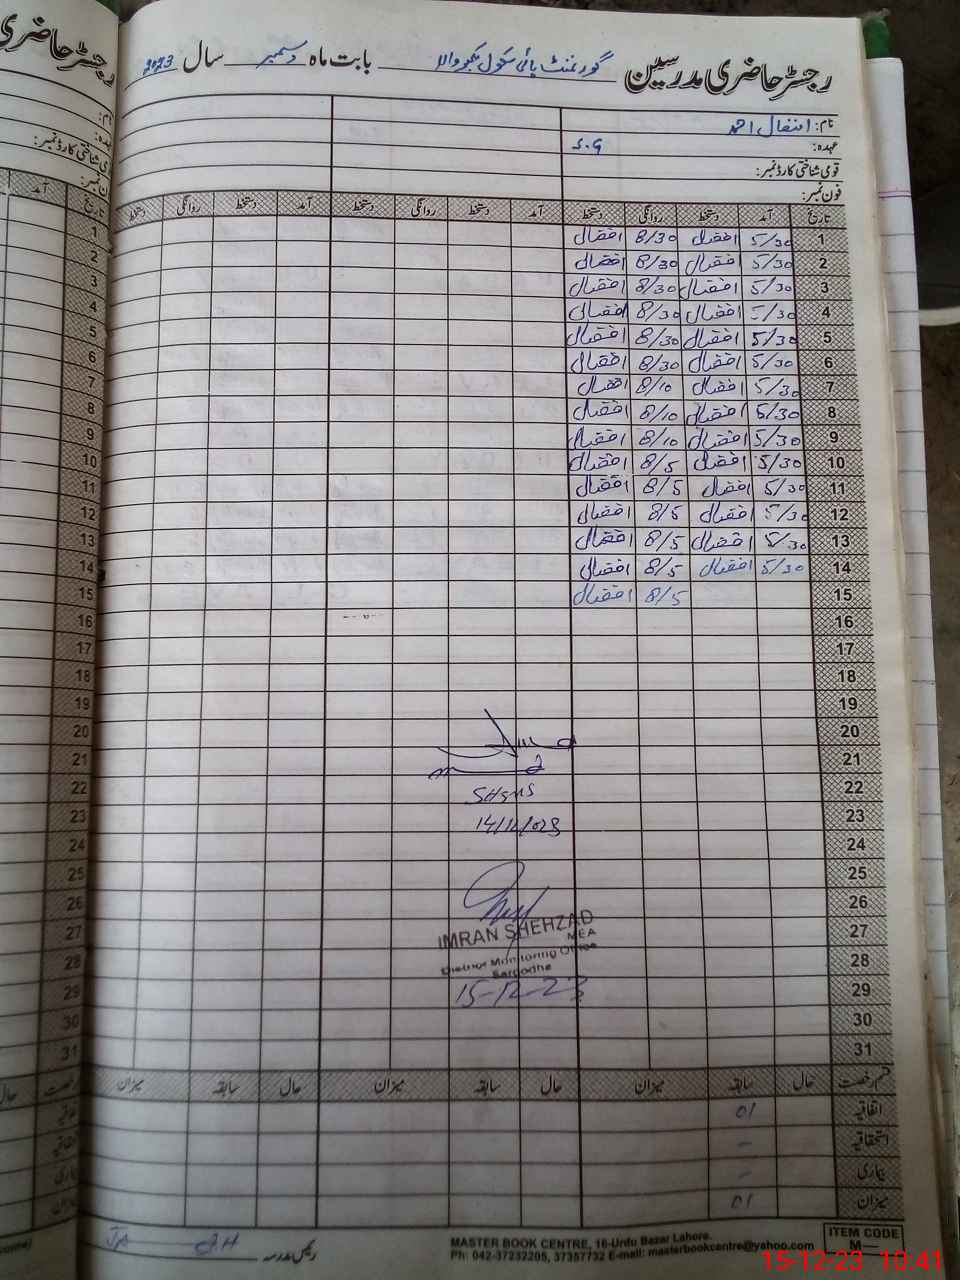 رجسٹر حاضری مدرسین گورنمنٹ ہائی سکول بابت ماہ دسمبر سال 2023
نام: افضال احمد
عہدہ: S.G
قومی شناختی کارڈ نمبر:
فون نمبر:
تاریخ آمد دستخط روانگی دستخط آمد دستخط روانگی دستخط آمد دستخط روانگی دستخط
1 5/30 افضال 8/30 افضال
2 5/30 افضال 8/30 افضال
3 5/30 افضال 8/30 افضال
4 5/30 افضال 8/30 افضال
5 5/30 افضال 8/30 افضال
6 5/30 افضال 8/30 افضال
7 5/30 افضال 8/10 افضال
8 5/30 افضال 8/10 افضال
9 5/30 افضال 8/10 افضال
10 5/30 افضال 8/5 افضال
11 5/30 افضال 8/5 افضال
12 5/30 افضال 8/5 افضال
13 5/30 افضال 8/5 افضال
14 5/30 افضال 8/5 افضال
15 8/5 افضال
16
17
18
19
20
21
22
23
24
25
26
27
28
29
30
31
14/12/023
IMRAN SHEHZAD
MEA
District Monitoring Office
Sargodha
15-12-23
قسم رخصت حال سابقہ میزان حال سابقہ میزان حال سابقہ میزان
اتفاقیہ 01
استحقاقیہ -
بیماری -
میزان 01
رئیس مدرسہ
MASTER BOOK CENTRE, 16-Urdu Bazar Lahore.
Ph: 042-37232205, 37357732 E-mail: masterbookcentre@yahoo.com
ITEM CODE
M—
15-12-23 10:41